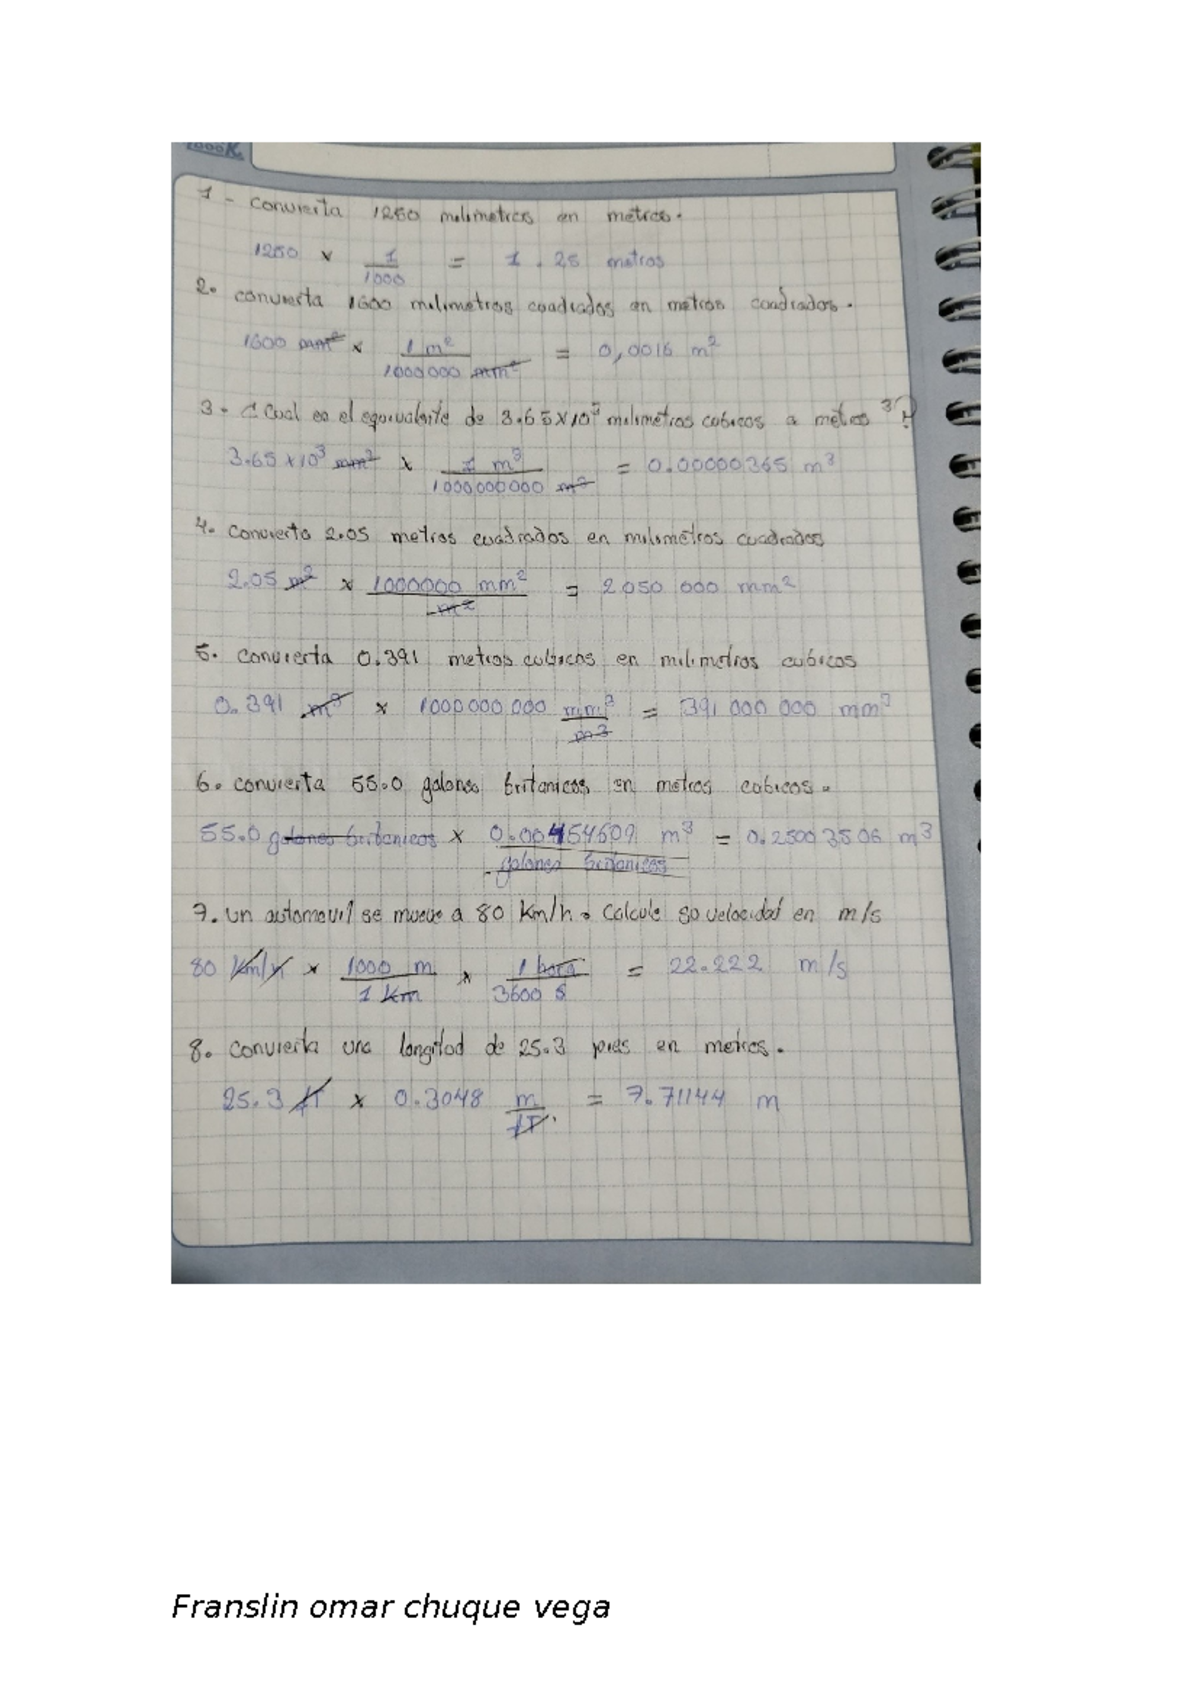 1- Convierta 1250 milimetros en metros.
1250 x 1/1000 = 1.25 metros
2. convierta 1600 milimetros cuadrados en metros cuadrados.
1600 mm² x 1 m²/1000000 mm² = 0,0016 m²
3- ¿Cual es el equivalente de 3.65x10³ milimetros cubicos a metros ³?
3.65 x10³ mm³ x 1 m³/1000000000 m³ = 0.00000365 m³
4. Convierta 2.05 metros cuadrados en milimetros cuadrados
2.05 m² x 1000000 mm²/m² = 2050 000 mm²
5. convierta 0.391 metros cubicos en milimetros cubicos
0.391 m³ x 1000 000 000 mm³/m3 = 391 000 000 mm³
6. convierta 55.0 galones britanicos en metros cubicos.
55.0 galones britanicos x 0.00454609 m³/galones britanicos = 0.25003506 m3
7. un automovil se mueve a 80 Km/h. Calcule so velocidad en m/s
80 Km/h x 1000 m/1 Km x 1 hora/3600 s = 22.222 m/s
8. convierta una longitud de 25.3 pies en metros.
25.3 fT x 0.3048 m/fT. = 7.71144 m
Franslin omar chuque vega